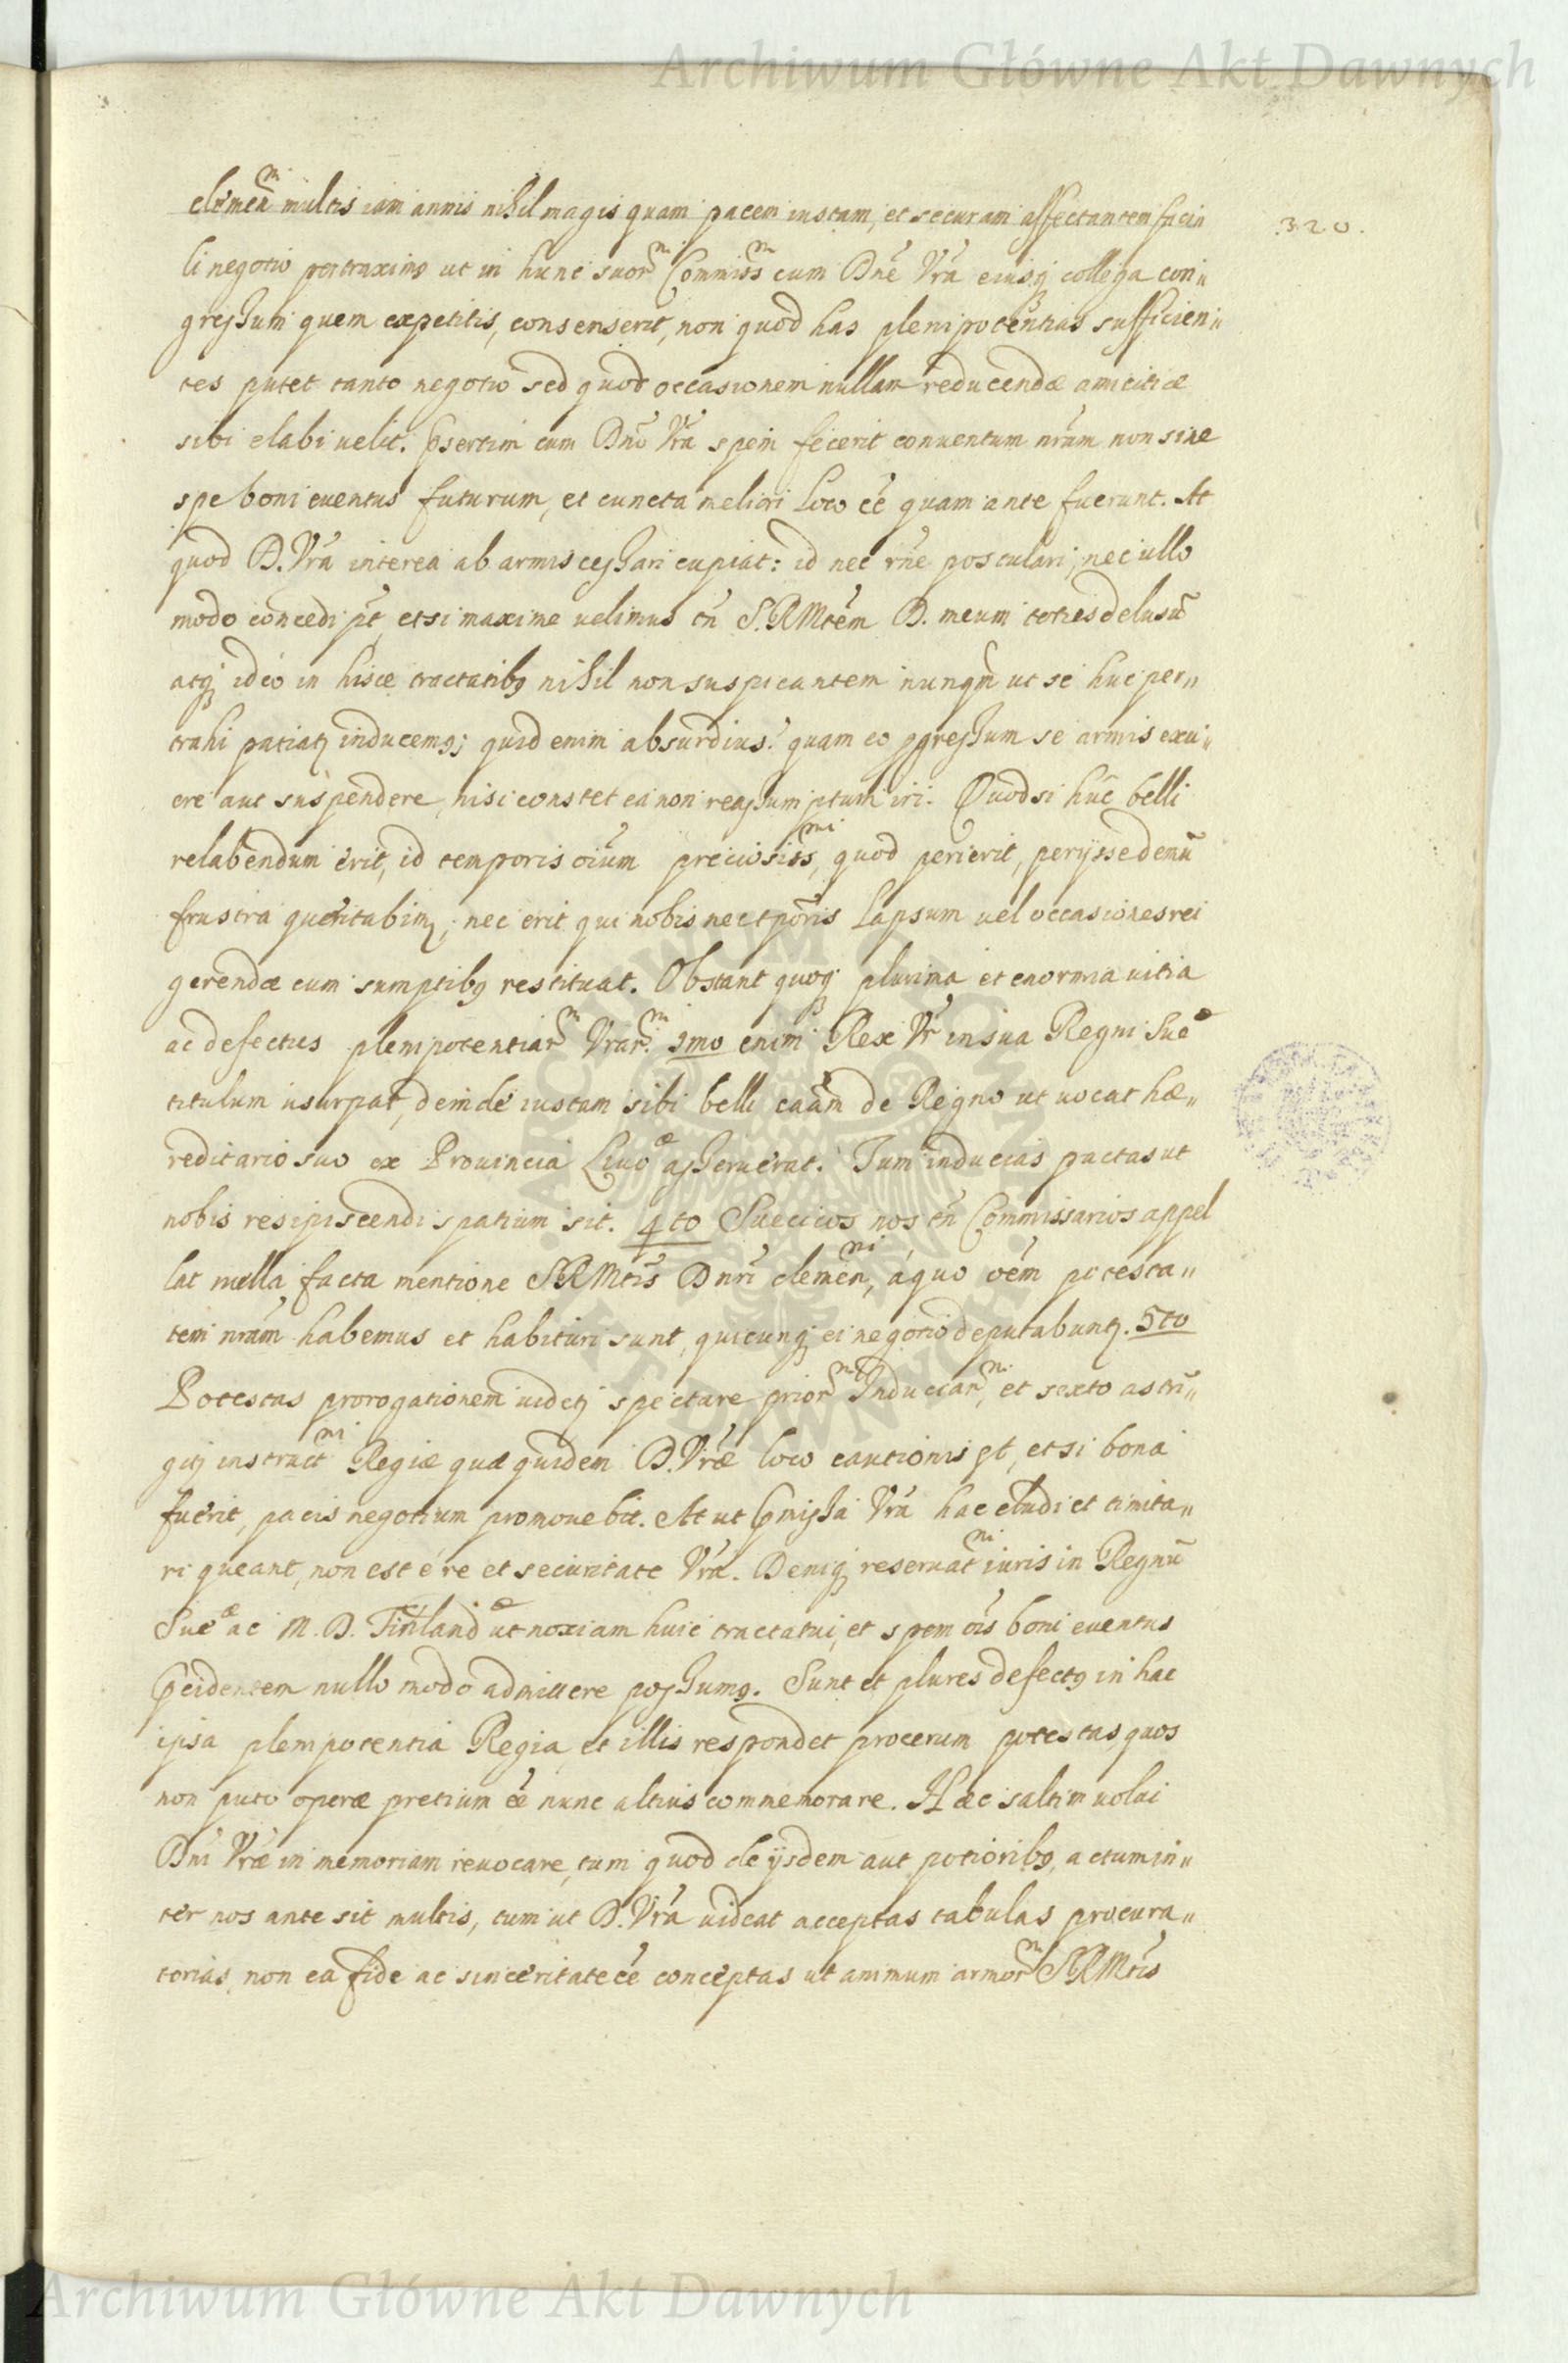 Archiwum Główne Akt Dawnych
320.
clemen̄ᵐ multis iam annis nihil magis quam pacem iustam, et securam affectantem faci„
li negotio pertraximꝰ ut in hunc suorᵐ Commissᵐ cum Dn̄e Vrā eiusq; collega con„
gressum quem expetitis, consenserit, non quod has plenipotentias sufficien„
tes putet tanto negotio sed quod occasionem nullam reducendæ amicitiæ
sibi elabi uelit. p̄sertim cum Dn̄o Vrā spem fecerit conuentum nr̄um non sine
spe boni euentus futurum, et cuncta meliori loco ēē quam ante fuerunt. At
quod D. Vrā interea ab armis cessari cupiat: id nec rn̄e postulari, nec ullo
modo concedi pt̄, etsi maxime uelimus tn̄ S. R Mtēm D. meum toties delusū
atq; ideo in hisce tractatibꝰ nihil non suspicantem nunqm̄ ut se huc per„
trahi patiatꝫ inducemꝰ; quid enim absurdius? quam eo ꝓgressum se armis exu„
ere aut suspendere, nisi constet ea non reassumptum iri. Quod si hūc belli
relabendum erit, id temporis oiūm preciosissᵐⁱ, quod perierit, perijsse demū
frustra queritabimꝰ, nec erit qui nobis nec tpōris lapsum uel occasiones rei
gerendæ cum sumptibꝰ restituat. Obstant quoq; plurima et enormia uitia
ac defectus plenipotentiarᵐ Vrarᵐ. 1mo enim Rex Vr̄ in sua Regni Sueᵉ
titulum usurpat, deinde iustam sibi belli caām de Regno ut uocat hæ„
reditario suo ex Prouincia Liuoᵉ asseruerat. Tum inducias pactas ut
nobis resipiscendi spatium sit. 4to Suecicos nos tn̄ Commissarios appel
lat nulla facta mentione SRMtīs Dnr̄i clemen̄ᵐⁱ, á quo oēm potesta„
tem nrām habemus et habituri sunt, quicunq; ei negotio deputabuntꝫ. 5to
Potestas prorogationem uidetꝫ spectare priorᵐ Induciarᵐ, et sexto astrī„
gitꝫ instructⁿⁱ Regiæ quæ quidem D. Vrāe loco cautionis pt̄, etsi bona
fuerit, pacis negotium promouebit. At ut p̄missa Vrā hac eludi et limita„
ri queant, non est é re et securitate Vrā. Deniq; reseruatⁿⁱ iuris in Regnū
Sueᵉ ac M. D. Finlandᵉ ut noxiam huic tractatui, et spem oīs boni euentus
p̄cidentem nullo modo admittere possumꝰ. Sunt et plures defectꝰ in hac
ipsa plenipotentia Regia, et illis respondet procerum potestas quos
non puto operæ pretium ēē nunc altius commemorare. Hæc saltim uolui
Dn̄i Vrāe in memoriam reuocare, tum quod de ijsdem aut potioribꝰ, actum in„
ter nos ante sit multis, tum ut D. Vrā uideat acceptas tabulas procura„
torias, non ea fide ac sinceritate ēē conceptas ut animum armorᵐ SRMtīs
Archiwum Główne Akt Dawnych